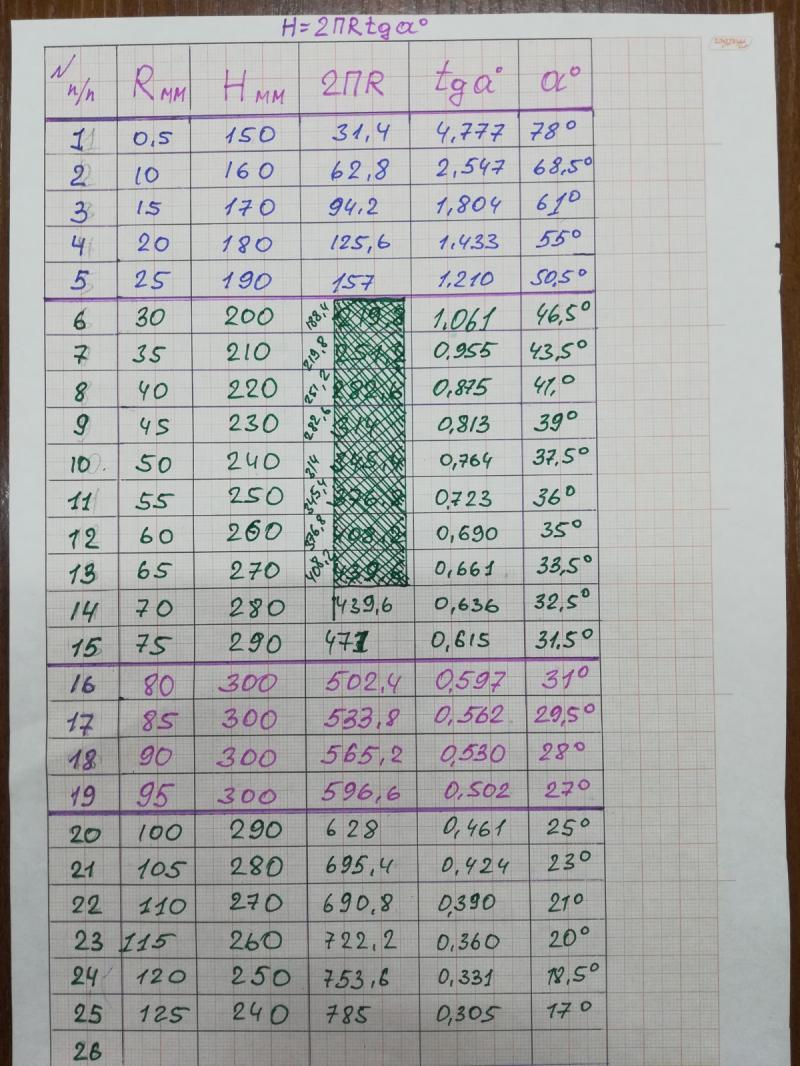 H=2ПRtgα°
N п/п R мм H мм 2ПR tgα° α°
1 0,5 150 31,4 4,777 78°
2 10 160 62,8 2,547 68,5°
3 15 170 94,2 1,804 61°
4 20 180 125,6 1.433 55°
5 25 190 157 1.210 50,5°
6 30 200 188,4 1,061 46,5°
7 35 210 219,8 0,955 43,5°
8 40 220 251,2 0,875 41,°
9 45 230 282,6 0,813 39°
10. 50 240 314 0,764 37,5°
11 55 250 345,4 0,723 36°
12 60 260 376,8 0,690 35°
13 65 270 408,2 0,661 33,5°
14 70 280 439,6 0,636 32,5°
15 75 290 471 0,615 31.5°
16 80 300 502,4 0,597 31°
17 85 300 533,8 0,562 29,5°
18 90 300 565,2 0,530 28°
19 95 300 596,6 0,502 27°
20 100 290 628 0,461 25°
21 105 280 695,4 0,424 23°
22 110 270 690,8 0,390 21°
23 115 260 722,2 0,360 20°
24 120 250 753,6 0,331 18,5°
25 125 240 785 0,305 17°
26